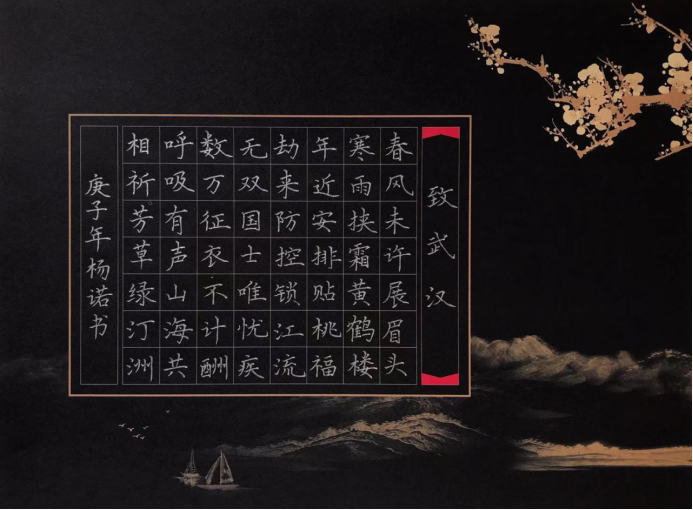 致武汉
春风未许展眉头
寒雨挟霜黄鹤楼
年近安排贴桃福
劫来防控锁江流
无双国士唯忧疾
数万征衣不计酬
呼吸有声山海共
相祈芳草绿汀洲
庚子年杨诺书